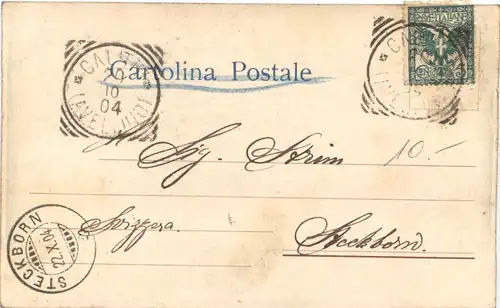 CALIT
20
10
04
(AVELLINO)
Cartolina Postale
CALI
Sig. Strim
10.-
Svizzera
Steckborn.
STECKBORN
22.X.04